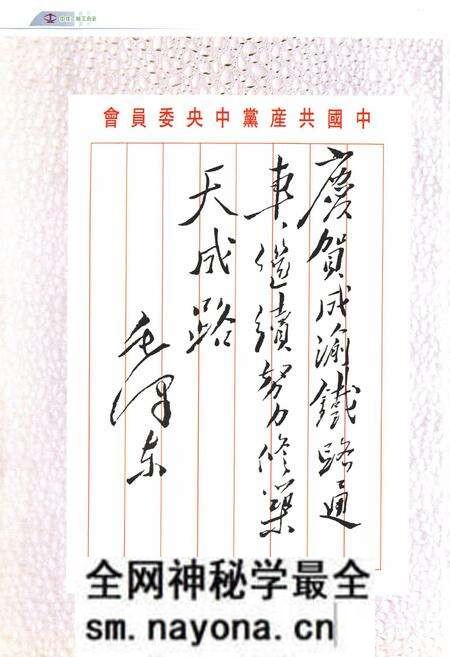 中國共産黨中央委員會
慶賀成渝鐵路通
車、繼續努力修築
天成路
毛澤东
全网神秘学最全
sm.nayona.cn